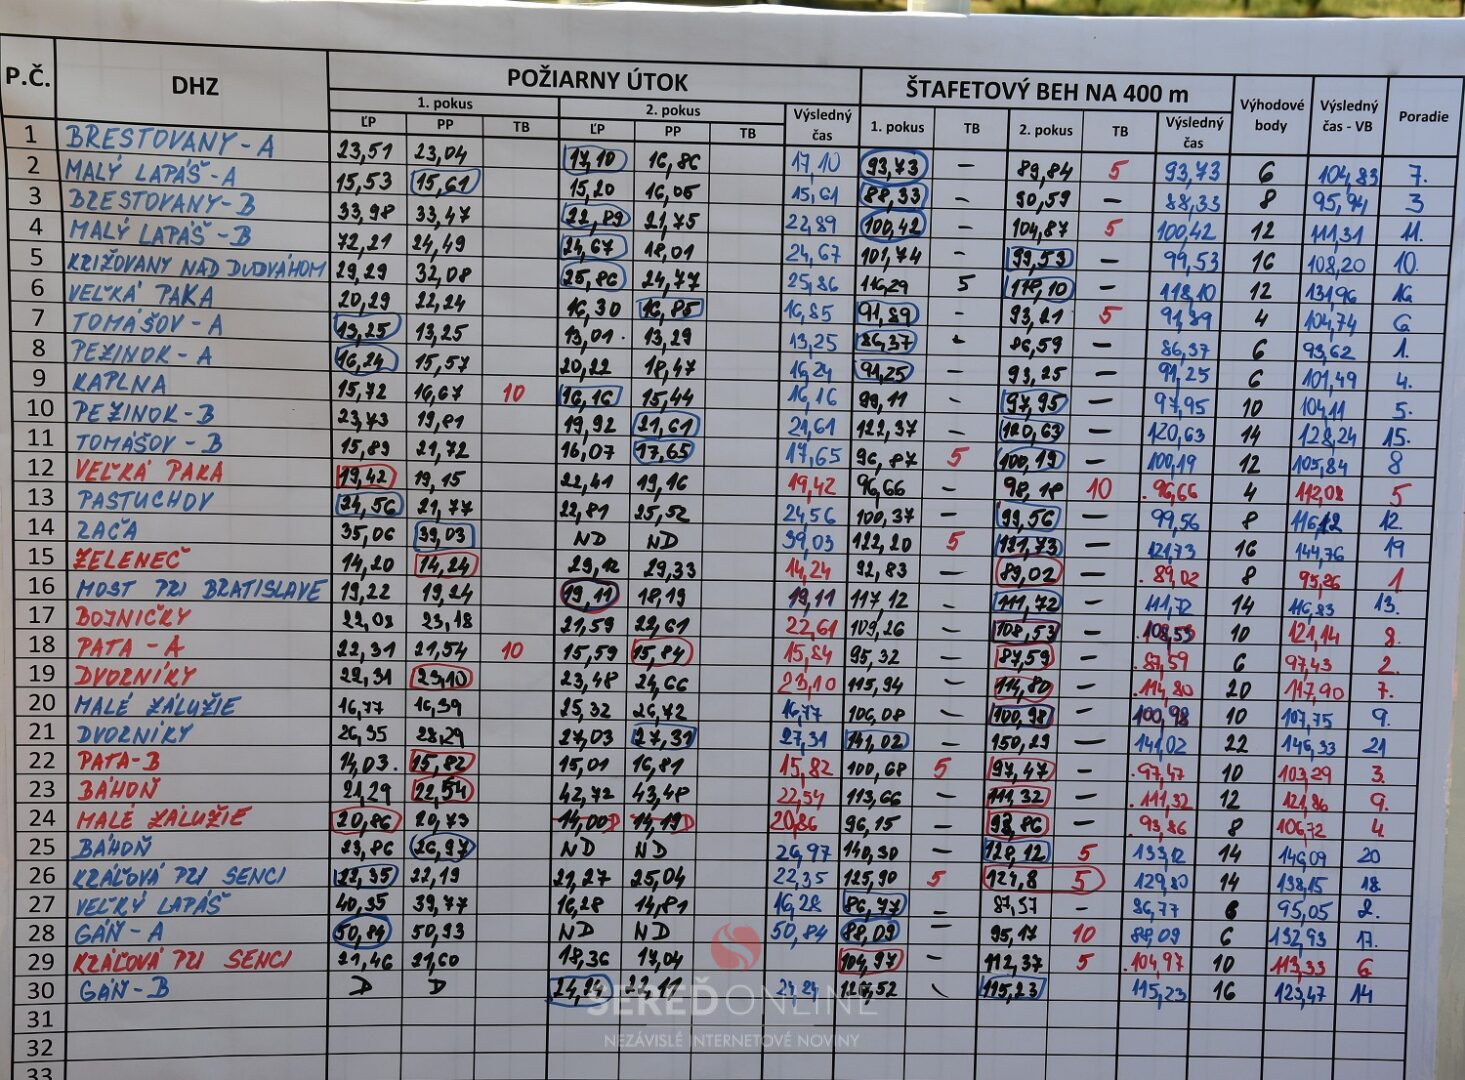 P.Č. DHZ POŽIARNY ÚTOK ŠTAFETOVÝ BEH NA 400 m Výhodové body Výsledný čas - VB Poradie
1. pokus 2. pokus Výsledný čas 1. pokus TB 2. pokus TB Výsledný čas
ĽP PP TB ĽP PP TB
1 BRESTOVANY - A 23,51 23,04 17,10 16,86 17,10 93,73 - 89,84 5 93,73 6 104,83 7.
2 MALÝ LAPÁŠ - A 15,53 15,61 15,20 16,05 15,61 88,33 - 90,59 - 88,33 8 95,94 3
3 BRESTOVANY - B 33,98 33,47 22,89 21,75 22,89 100,42 - 104,87 5 100,42 12 111,31 11.
4 MALÝ LAPÁŠ - B 72,21 24,49 24,67 18,01 24,67 101,74 - 99,53 - 99,53 16 108,20 10.
5 KRIŽOVANY NAD DUDVÁHOM 29,29 32,08 25,86 24,77 25,86 116,29 5 118,10 - 118,10 12 131,96 16
6 VEĽKÁ PAKA 20,29 22,24 16,30 16,85 16,85 91,89 - 93,21 5 91,89 4 104,74 6
7 TOMÁŠOV - A 13,25 13,25 13,01 13,29 13,25 86,37 - 86,59 - 86,37 6 93,62 1.
8 PEZINOK - A 16,24 15,57 20,22 18,47 16,24 91,25 - 93,25 - 91,25 6 101,49 4.
9 KAPLNA 15,72 16,67 10 16,16 15,44 16,16 99,11 - 97,95 - 97,95 10 104,11 5.
10 PEZINOK - B 23,73 19,81 19,92 21,61 21,61 122,37 - 120,63 - 120,63 14 128,24 15.
11 TOMÁŠOV - B 15,89 21,72 16,07 17,65 17,65 96,87 5 100,19 - 100,19 12 105,84 8
12 VEĽKÁ PAKA 19,42 19,15 22,41 19,16 19,42 96,66 - 98,18 10 96,66 4 112,08 5
13 PASTUCHOV 24,56 21,77 22,81 25,52 24,56 100,37 - 99,56 - 99,56 8 116,12 12.
14 ZAČA 35,06 39,03 ND ND 39,03 122,20 5 121,73 - 121,73 16 144,76 19
15 ZELENEČ 14,20 14,24 29,12 29,33 14,24 92,83 - 89,02 - 89,02 8 95,26 1
16 MOST PRI BRATISLAVE 19,22 19,24 19,11 18,19 19,11 117,12 - 111,72 - 111,72 14 116,83 13.
17 BOJNIČKY 22,08 23,18 21,59 22,61 22,61 109,26 - 108,53 - 108,53 10 121,14 8.
18 PATA - A 22,31 21,54 10 15,59 15,84 15,84 95,32 - 87,59 - 87,59 6 97,43 2.
19 DVORNÍKY 22,31 23,10 23,48 24,66 23,10 115,94 - 114,80 - 114,80 20 117,90 7.
20 MALÉ ZÁLUŽIE 16,77 16,39 25,32 26,72 16,77 106,08 - 100,98 - 100,98 10 107,75 9.
21 DVORNÍKY 26,35 28,29 27,03 27,31 27,31 141,02 - 150,29 - 141,02 22 146,33 21
22 PATA - B 14,03 15,82 15,01 16,81 15,82 100,68 5 97,47 - 97,47 10 103,29 3.
23 BÁHOŇ 21,29 22,54 42,72 43,48 22,54 113,66 - 111,32 - 111,32 12 121,86 9.
24 MALÉ ZÁLUŽIE 20,86 20,73 14,00 D 14,19 D 20,86 96,15 - 93,86 - 93,86 8 106,72 4.
25 BÁHOŇ 23,86 26,97 ND ND 26,97 140,30 - 128,12 5 133,12 14 146,09 20
26 KRÁĽOVÁ PRI SENCI 22,35 22,19 21,27 25,04 22,35 125,90 5 124,8 5 129,80 14 138,15 18
27 VEĽKÝ LAPÁŠ 40,35 39,77 16,28 14,81 16,28 86,77 - 87,57 - 86,77 8 95,05 2.
28 GÁŇ - A 50,84 50,93 ND ND 50,84 88,09 - 95,17 10 88,09 6 132,93 17.
29 KRÁĽOVÁ PRI SENCI 21,46 21,60 18,36 17,04 104,97 - 112,37 5 104,97 10 113,33 6
30 GÁŇ - B D D 24,24 22,11 24,24 52 - 115,23 115,23 16 123,47 14
31
32
33
SEREĎONLINE
NEZÁVISLÉ INTERNETOVÉ NOVINY